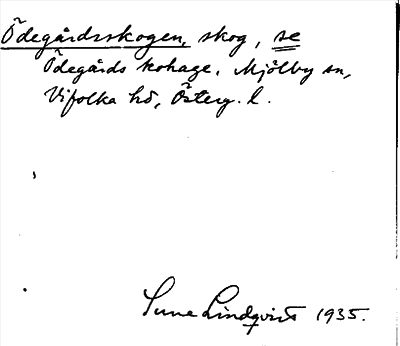 Ödegårdsskogen, skog, se
Ödegårds kohage, Mjölby sn,
Vifolka hd, Österg. l.
Sune Lindqvist 1935.